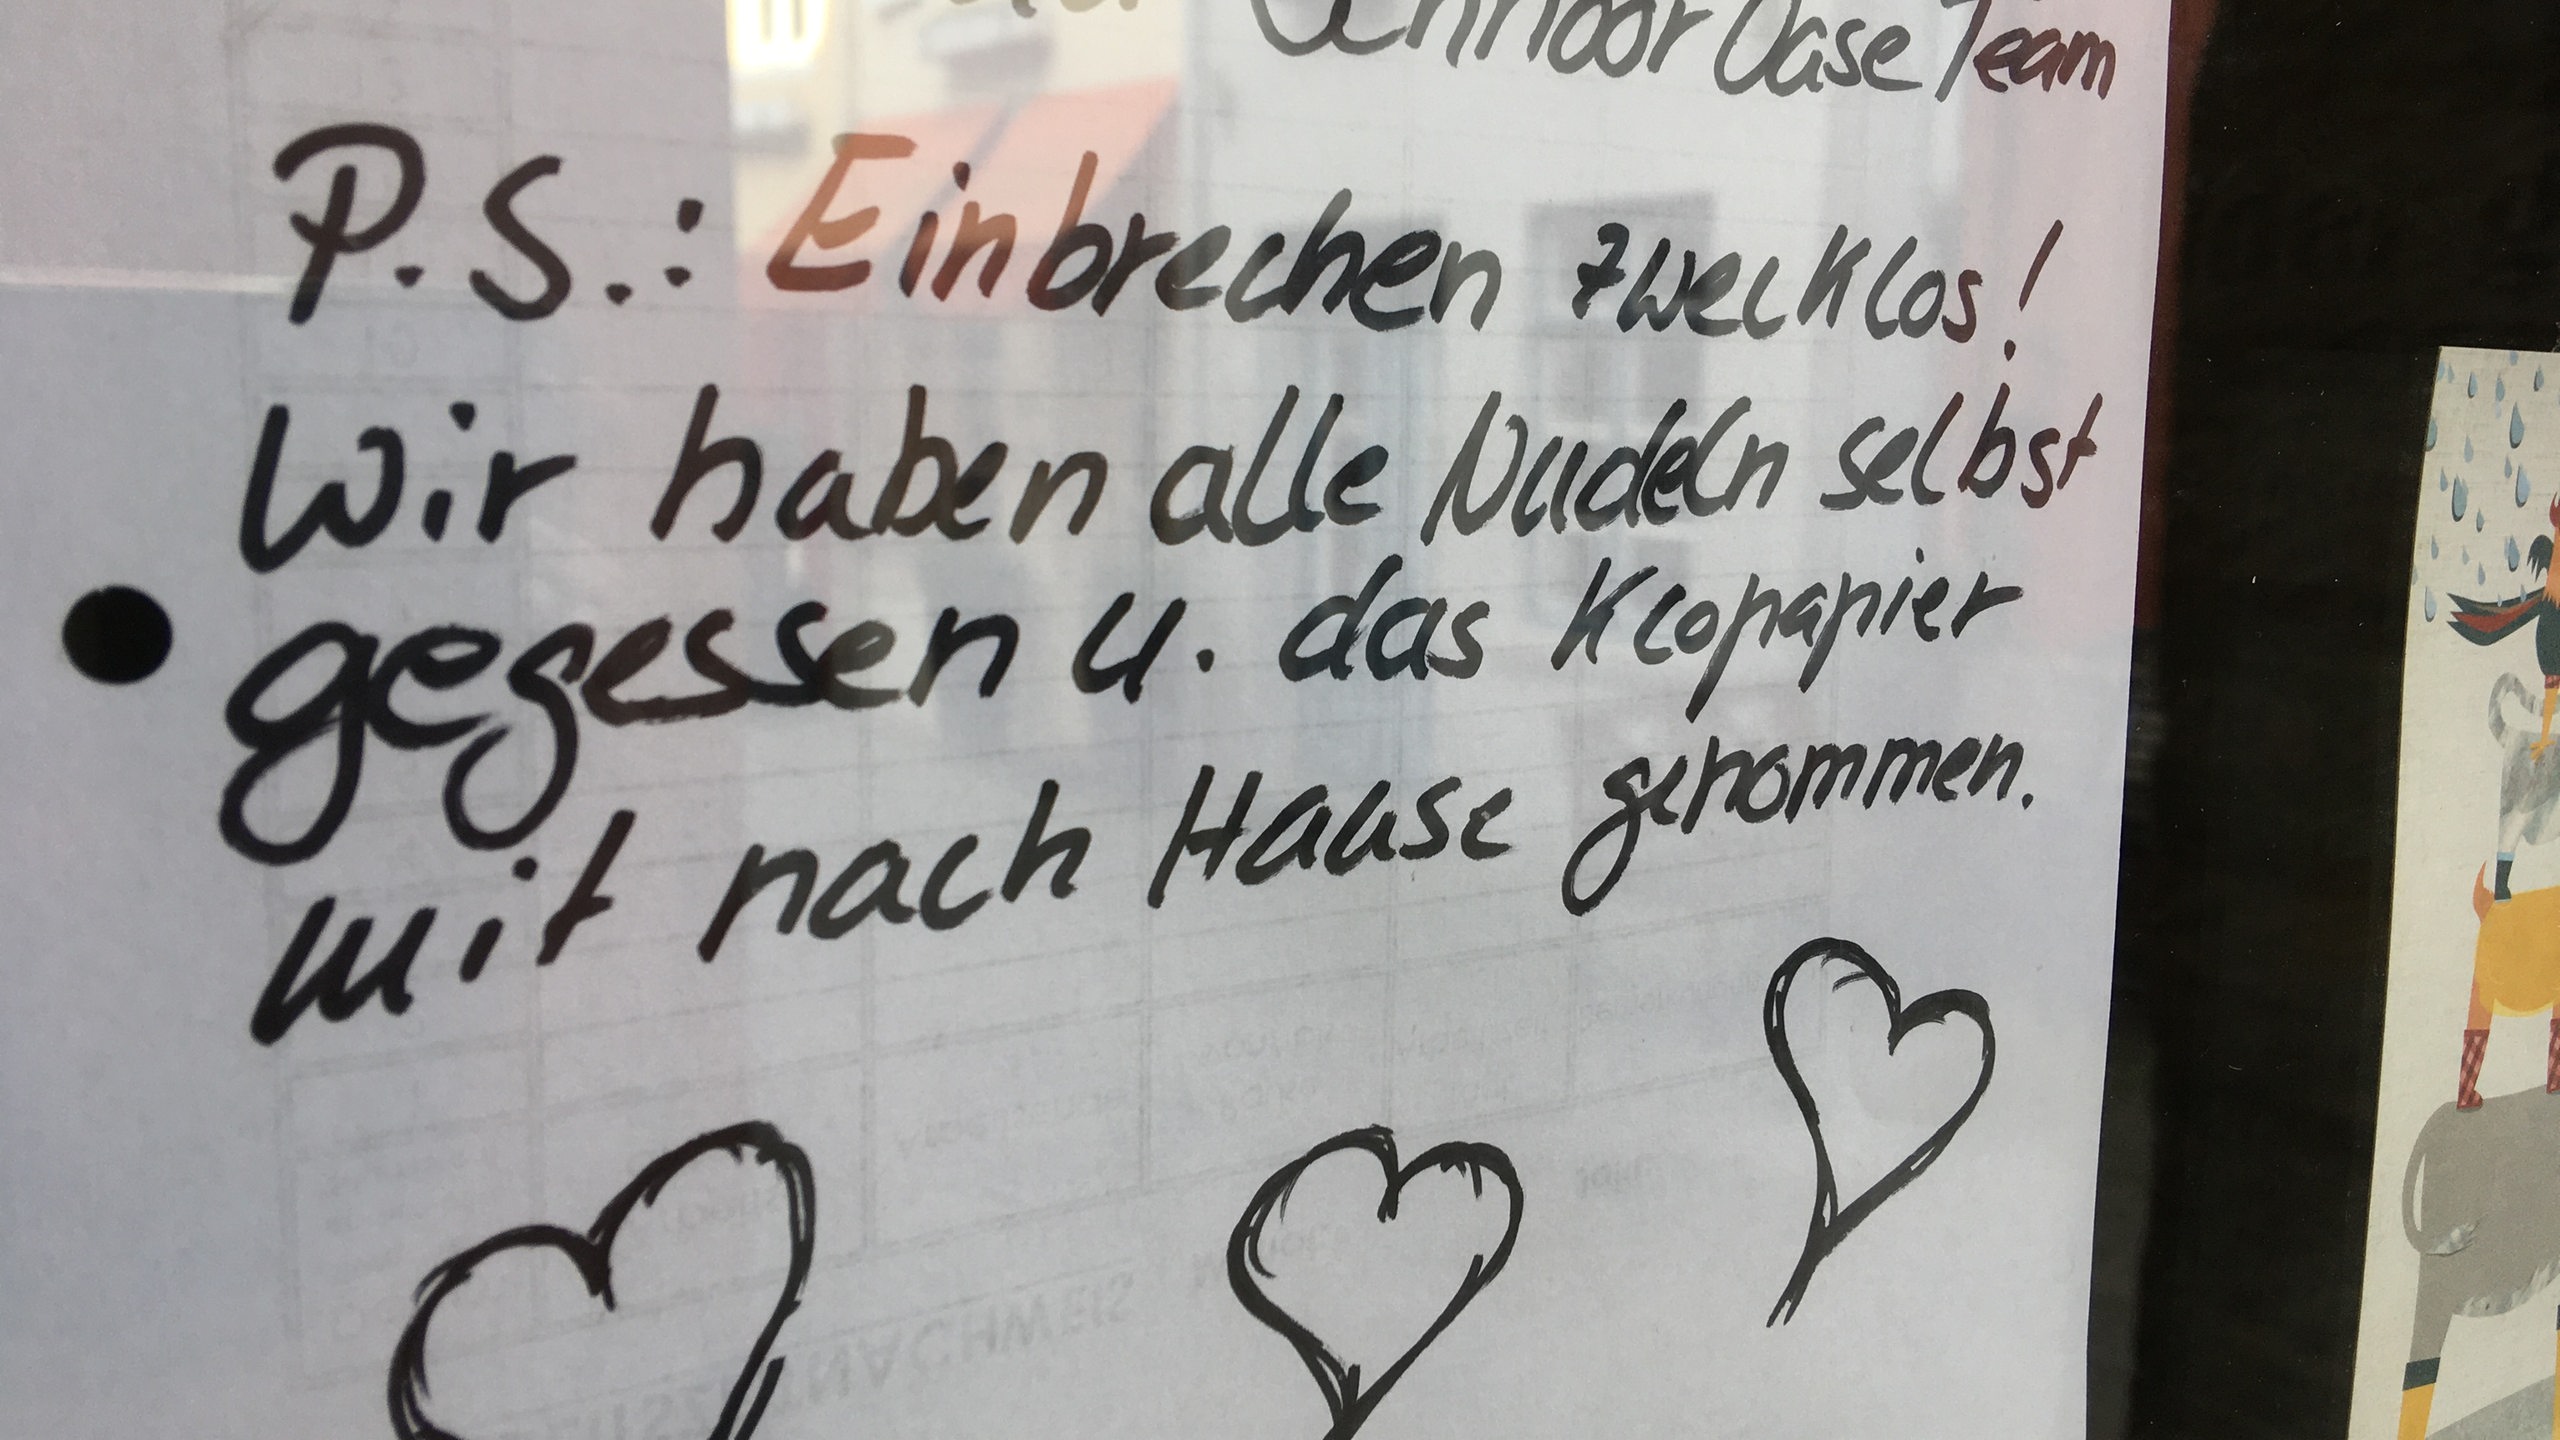 Schnoor Oase Team
P.S.: Einbrechen zwecklos!
Wir haben alle Nudeln selbst
gegessen u. das Klopapier
mit nach Hause genommen.